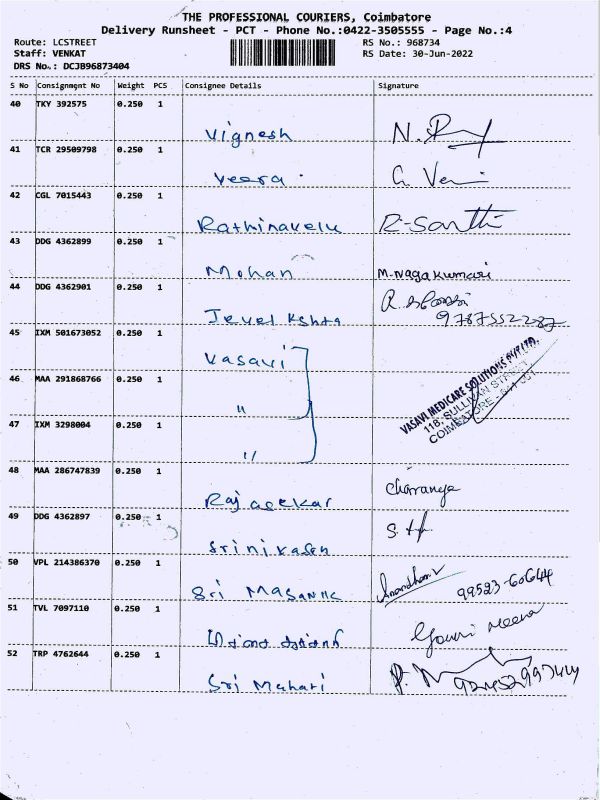 THE PROFESSIONAL COURIERS, Coimbatore
Delivery Runsheet - PCT - Phone No.:0422-3505555 - Page No.:4
Route: LCSTREET
RS No.: 968734
Staff: VENKAT
RS Date: 30-Jun-2022
DRS No.: DCJB96873404
S No Consignment No Weight PCS Consignee Details Signature
40 TKY 392575 0.250 1
Vignesh
41 TCR 29509798 0.250 1
Veera G Veni
42 CGL 7015443 0.250 1
Rathinavelu R-Santhi
43 DDG 4362899 0.250 1
Mohan M.Nagakumari
44 DDG 4362901 0.250 1
9787552287
45 IXM 501673052 0.250 1
Vasavi
VASAVI MEDICARE SOLUTIONS PVT LTD.
118, SULLIVAN STREET
COIMBATORE - 641 001
46 MAA 291868766 0.250 1
"
47 IXM 3298004 0.250 1
"
48 MAA 286747839 0.250 1
Rajasekar
49 DDG 4362897 0.250 1
Srinivasan
50 VPL 214386370 0.250 1
Sri Anandhan.V 99523-60644
51 TVL 7097110 0.250 1
Gowri Meena
52 TRP 4762644 0.250 1
Sri